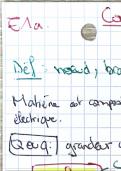 E1a.
Co
Déf : nœud, bra
Matière est compos
électrique.
Q e u q : grandeur